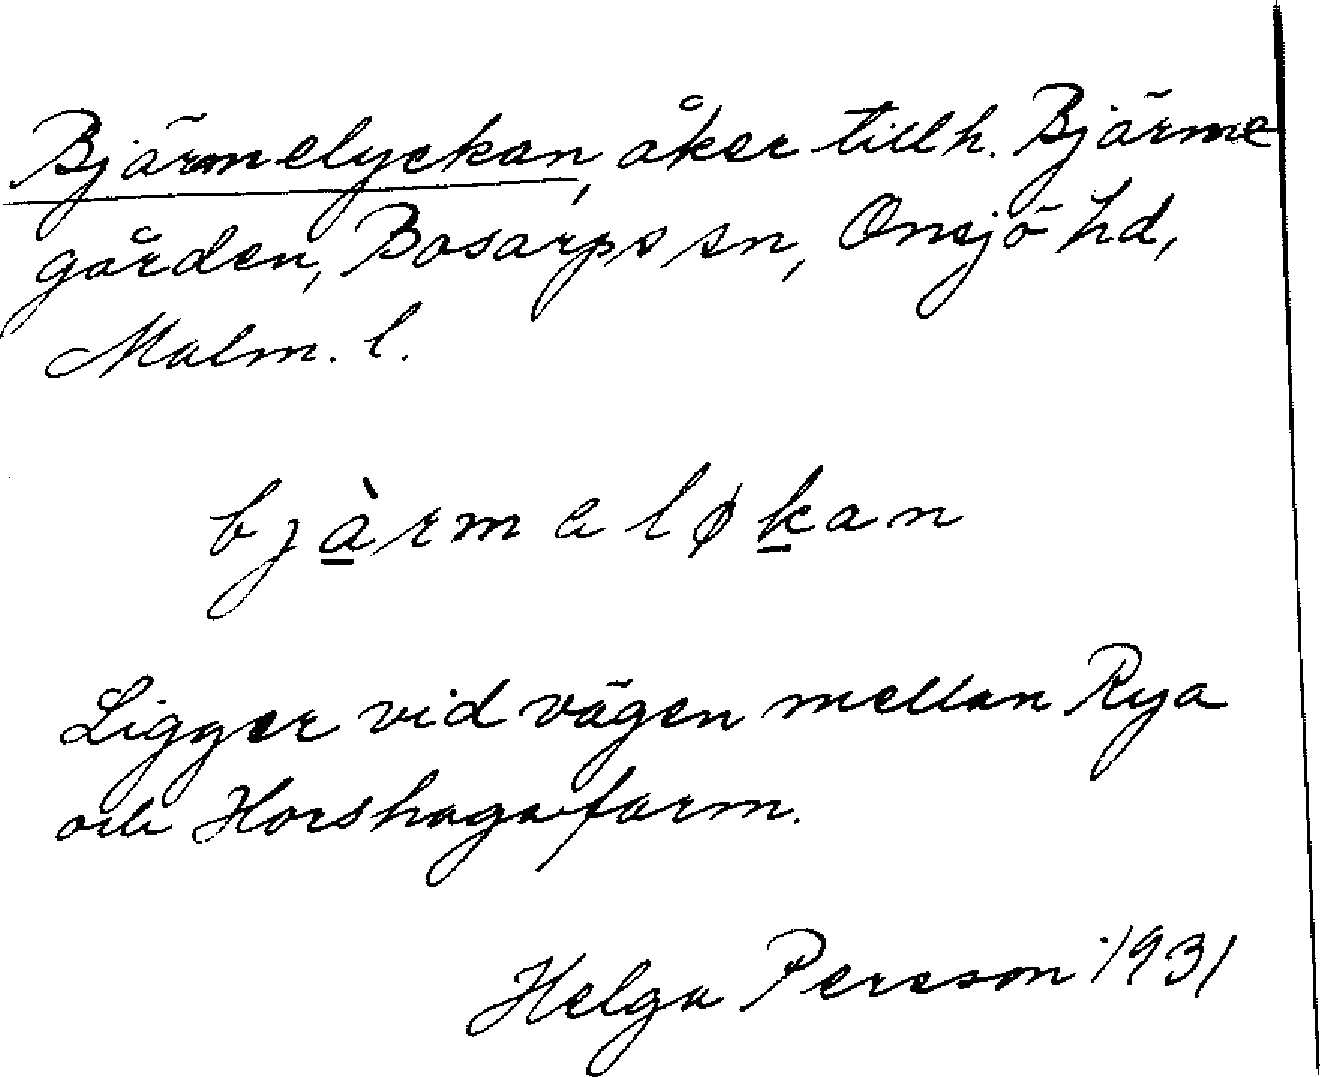 Bjärmelyckan, åker tillh. Bjärme
gården, Bosarps sn, Onsjö hd,
Malm. l.
bjàrmaløkan
Ligger vid vägen mellan Rya
och Horshagafarm.
Helga Persson 1931